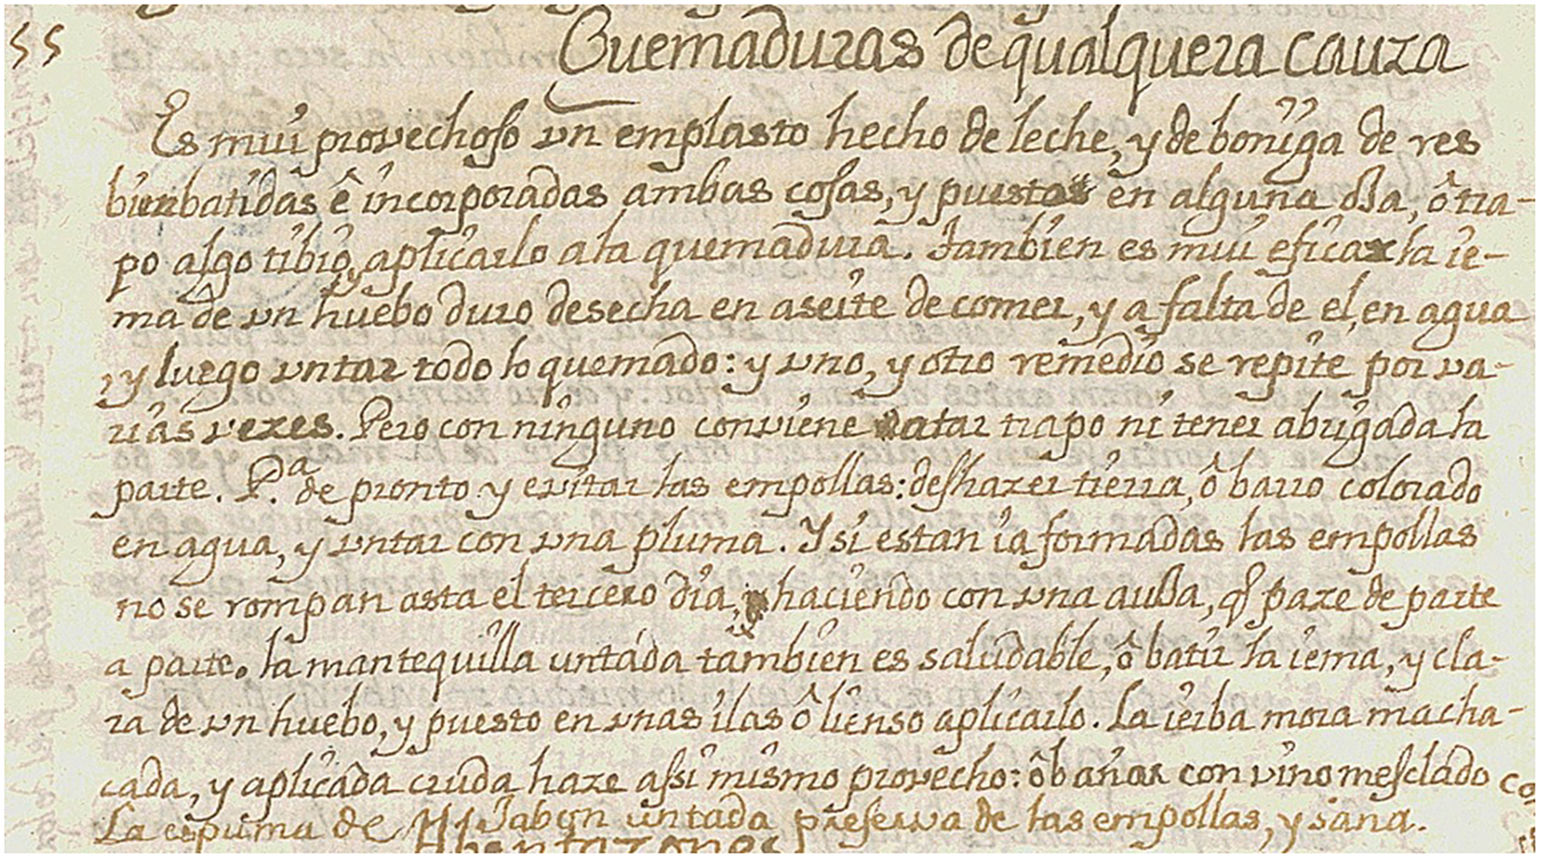 55
Quemaduras de qualquera cauza
Es mui provechoso un emplasto hecho de leche, y de boñiga de res
bien batidas ê incorporadas ambas cosas, y puestas en alguna olla, ô tra-
po algo tibio, aplicarlo a la quemadura. Tambien es mui eficax la ie-
ma de un huebo duro desecha en aseite de comer, y a falta de el, en agua
y luego untar todo lo quemado: y uno, y otro remedio se repite por va-
rias vezes. Pero con ninguno conviene atar trapo ni tener abrigada la
parte. P.a de pronto y evitar las empollas: deshazer tierra, ô barro colorado
en agua, y untar con una pluma. Y si estan ia formadas las empollas
no se rompan asta el tercero dia, haciendo con una aulla, q̃ paze de parte
a parte. la mantequilla untáda tambien es saludable, ô batir la iema, y cla-
ra de un huebo, y puesto en unas ilas ô lienso aplicarlo. La ierba mora macha-
cada, y aplicada cruda haze assi mismo provecho: ô bañar con vino mesclado
La espuma de Jabon untada preserva de las empollas, y sana.